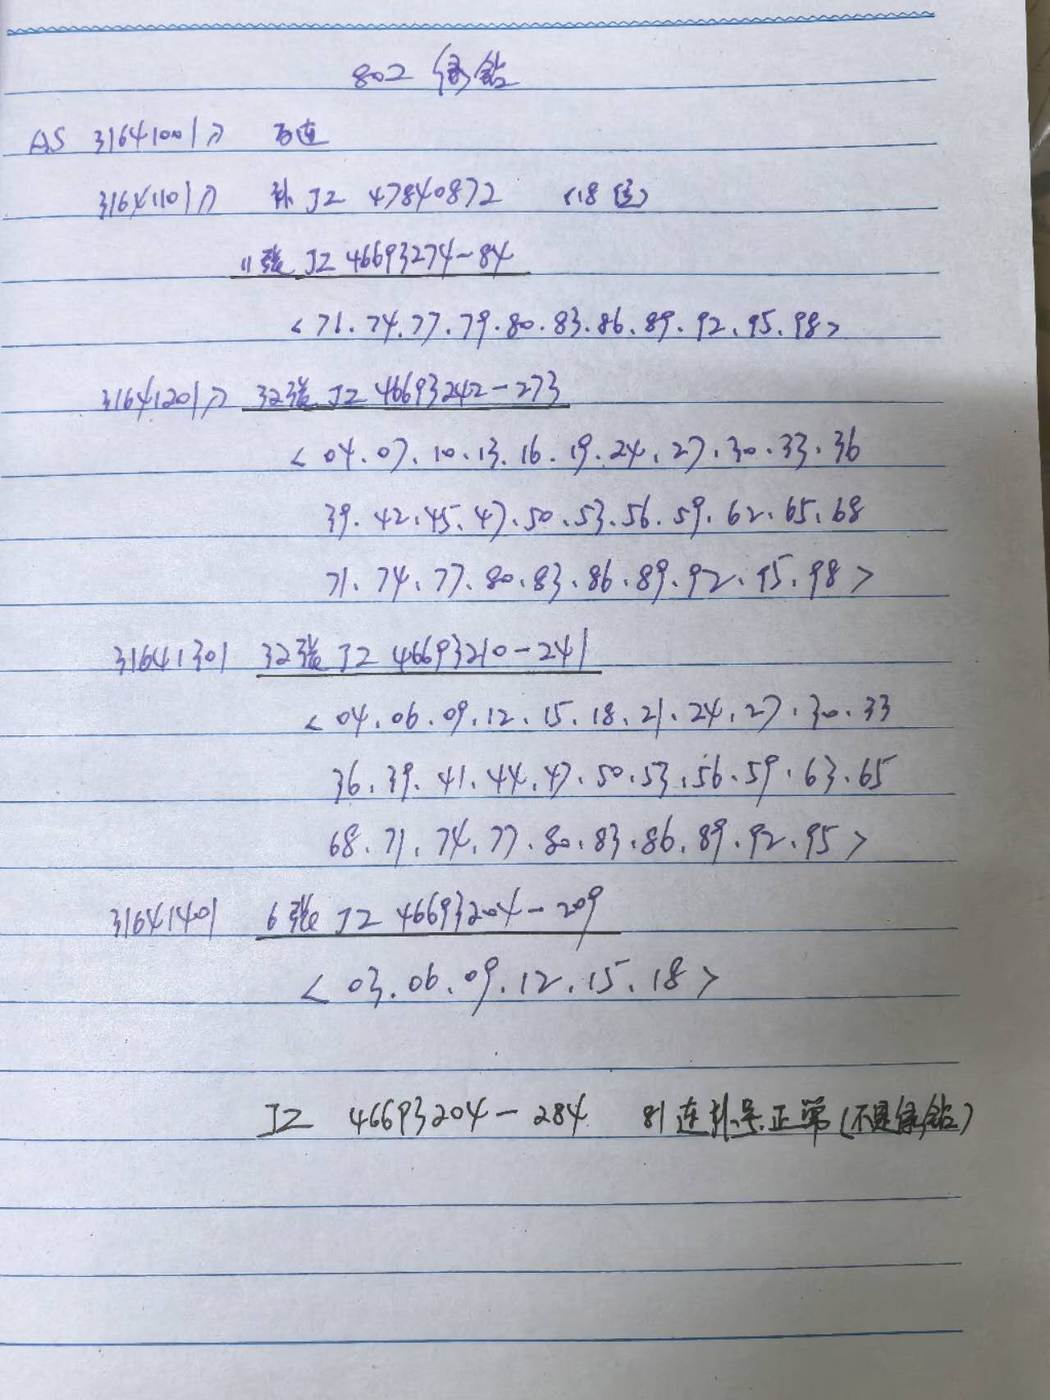 802 绿钻
AS 31641001刀 百连
31641101刀 补 JZ 47840872 <18位>
11张 JZ 46693274-84
<71.74.77.79.80.83.86.89.92.95.98>
31641201刀 32张 JZ 46693242-273
<04.07.10.13.16.19.24.27.30.33.36
39.42.45.47.50.53.56.59.62.65.68
71.74.77.80.83.86.89.92.95.98>
31641301 32张 JZ 46693210-241
<04.06.09.12.15.18.21.24.27.30.33
36.39.41.44.47.50.53.56.59.63.65
68.71.74.77.80.83.86.89.92.95>
31641401 6张 JZ 46693204-209
<03.06.09.12.15.18>
JZ 46693204-284 81连补号正常(不是绿钻)